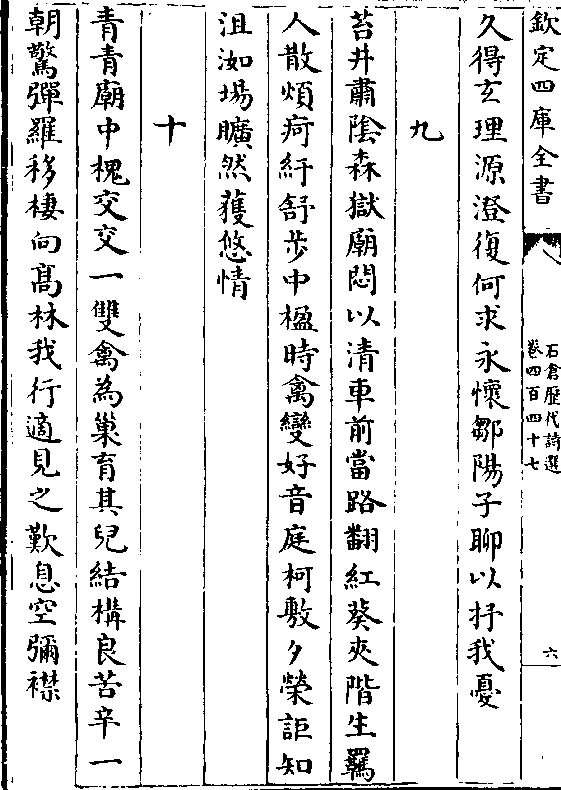 欽定四庫全書
石倉歷代詩選
卷四百四十七
六
久得玄理源澄復何求永懷鄒陽子聊以抒我憂
九
苔井肅陰森嶽廟悶以清車前當路翻紅葵夾階生羈
人散煩疴紆舒步中楹時禽變好音庭柯敷夕榮詎知
沮洳場曠然獲悠情
十
青青廟中槐交交一雙禽為巢育其兒結構良苦辛一
朝驚彈羅移棲向髙林我行適見之歎息空彌襟